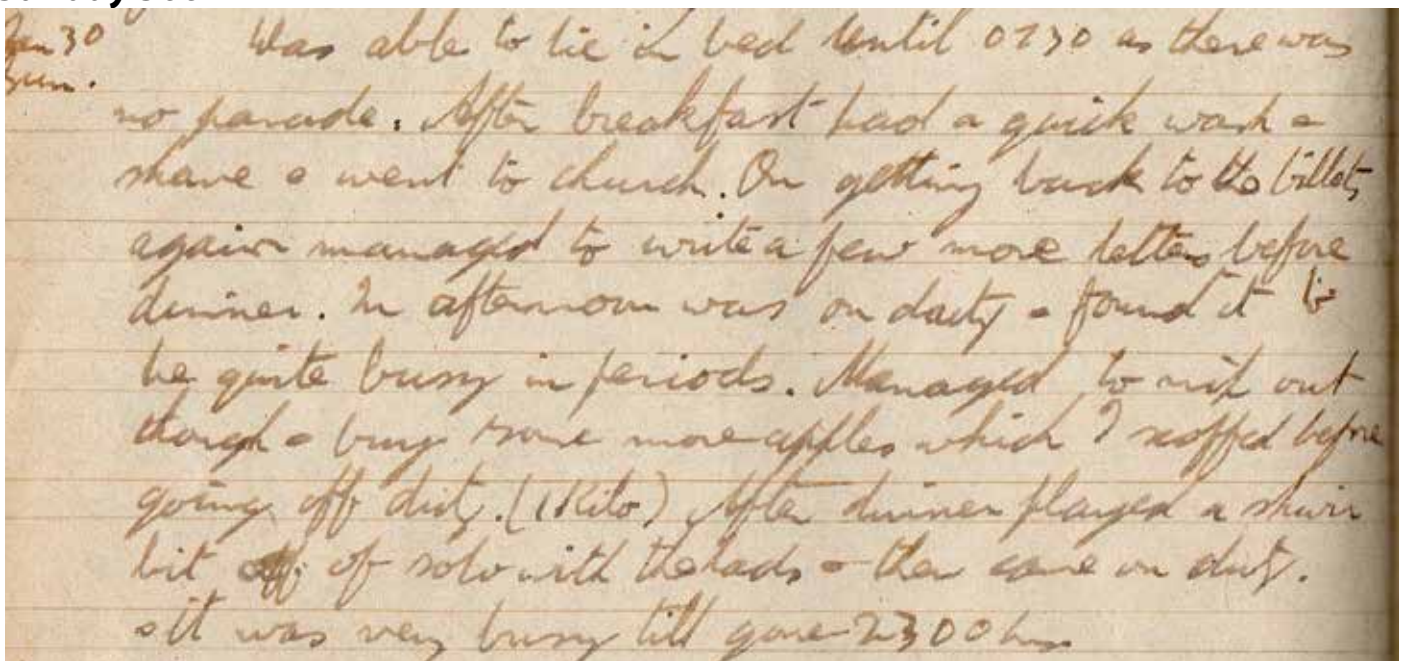 Jan 30 Was able to lie in bed until 0730 as there was
Sun.
no parade. After breakfast had a quick wash &
shave & went to church. On getting back to the billets
again managed to write a few more letters before
dinner. In afternoon was on duty & found it to
be quite busy in periods. Managed to nip out
though & buy some more apples which I scoffed before
going off duty. (1 Kilo) After dinner played a
bit of solo with the lads & then came on duty.
It was very busy till gone 2300 hrs